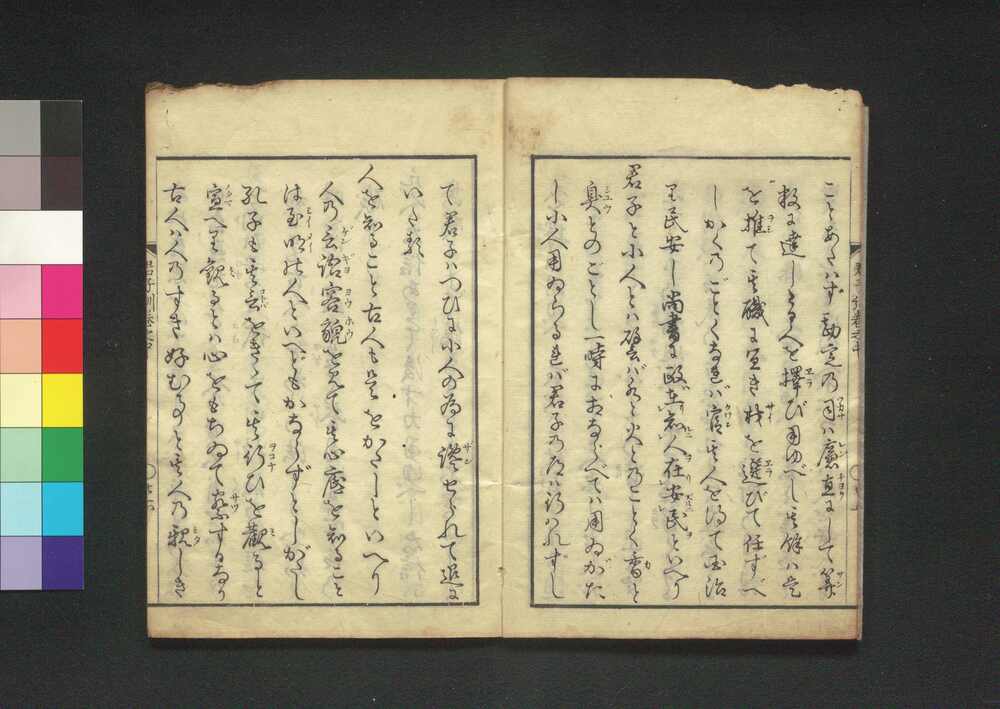 ことあたはず勘定の司は廉直にして算
数に達したる人を擇び用ゆべし其餘は是
を推て其職に宜き材を選びて任すべ
しかくのごとくなれば官其人を得て国治
り民安し尚書に政在知人在安民といへり
君子と小人とは譬ばなを火とのごとく香と
臭とのごとし一時におならべては用ゐがた
し小人用ゐらるれば君子の道は行はれずし
て君子はつひに小人の為に讒せられて退に
いたる
人を知ること古人も是をかたしといへり
人の言語容貌を見て其心底を知ること
は至明の人といへどもかならずとしがたし
孔子も其言をきゝて其行ひを觀ると
宣へり觀るとは心をもちゐて察するなり
古人は人のすき好むことと其人の親しき
君子訓巻之中